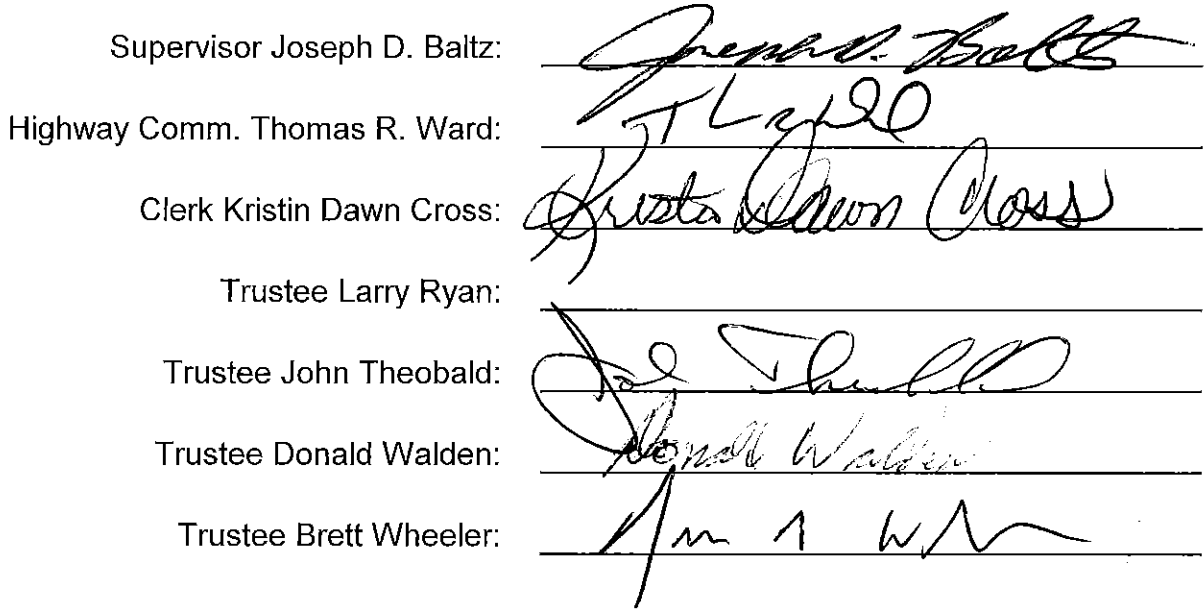 Supervisor Joseph D. Baltz: Joseph D. Baltz
Highway Comm. Thomas R. Ward:
Clerk Kristin Dawn Cross: Kristin Dawn Cross
Trustee Larry Ryan:
Trustee John Theobald: John Theobald
Trustee Donald Walden: Donald Walden
Trustee Brett Wheeler: